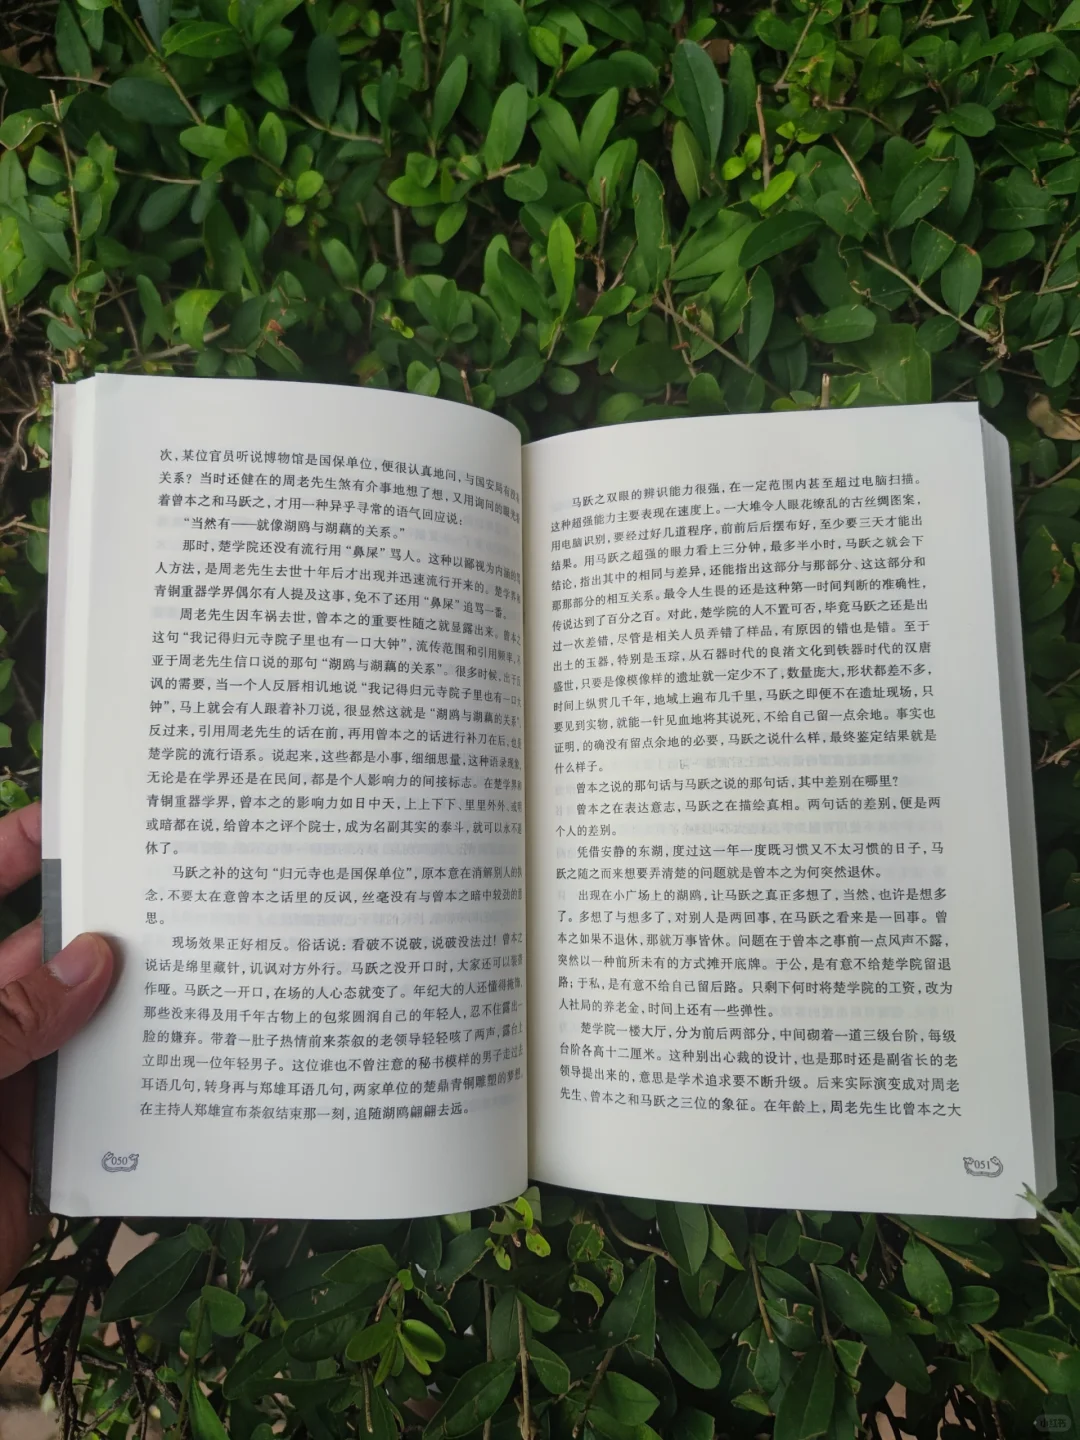 次，某位官员听说博物馆是国保单位，便很认真地问，与国安局有没有
关系？当时还健在的周老先生煞有介事地想了想，又用询问的眼光
着曾本之和马跃之，才用一种异乎寻常的语气回应说：
“当然有——就像湖鸥与湖藕的关系。”
那时，楚学院还没有流行用“鼻屎”骂人。这种以鄙视为内涵的骂
人方法，是周老先生去世十年后才出现并迅速流行开来的。楚学界和
青铜重器学界偶尔有人提及这事，免不了还用“鼻屎”追骂一番。
周老先生因车祸去世，曾本之的重要性随之就显露出来。曾本之
这句“我记得归元寺院子里也有一口大钟”，流传范围和引用频率，不
亚于周老先生信口说的那句“湖鸥与湖藕的关系”。很多时候，出于反
讽的需要，当一个人反唇相讥地说“我记得归元寺院子里也有一口大
钟”，马上就会有人跟着补刀说，很显然这就是“湖鸥与湖藕的关系”。
反过来，引用周老先生的话在前，再用曾本之的话进行补刀在后，也是
楚学院的流行语系。说起来，这些都是小事，细细思量，这种语录现象，
无论是在学界还是在民间，都是个人影响力的间接标志。在楚学界和
青铜重器学界，曾本之的影响力如日中天，上上下下、里里外外，或明
或暗都在说，给曾本之评个院士，成为名副其实的泰斗，就可以永不退
休了。
马跃之补的这句“归元寺也是国保单位”，原本意在消解别人的执
念，不要太在意曾本之话里的反讽，丝毫没有与曾本之暗中较劲的意
思。
现场效果正好相反。俗话说：看破不说破，说破没法过！曾本之
说话是绵里藏针，讥讽对方外行。马跃之没开口时，大家还可以装聋
作哑。马跃之一开口，在场的人心态就变了。年纪大的人还懂得掩饰，
那些没来得及用千年古物上的包浆圆润自己的年轻人，忍不住露出一
脸的嫌弃。带着一肚子热情前来茶叙的老领导轻轻咳了两声，露台上
立即出现一位年轻男子。这位谁也不曾注意的秘书模样的男子走过去
耳语几句，转身再与郑雄耳语几句，两家单位的楚鼎青铜雕塑的梦想，
在主持人郑雄宣布茶叙结束那一刻，追随湖鸥翩翩去远。
050
马跃之双眼的辨识能力很强，在一定范围内甚至超过电脑扫描。
这种超强能力主要表现在速度上。一大堆令人眼花缭乱的古丝绸图案，
用电脑识别，要经过好几道程序，前前后后摆布好，至少要三天才能出
结果。用马跃之超强的眼力看上三分钟，最多半小时，马跃之就会下
结论，指出其中的相同与差异，还能指出这部分与那部分、这这部分和
那那部分的相互关系。最令人生畏的还是这种第一时间判断的准确性，
传说达到了百分之百。对此，楚学院的人不置可否，毕竟马跃之还是出
过一次差错，尽管是相关人员弄错了样品，有原因的错也是错。至于
出土的玉器，特别是玉琮，从石器时代的良渚文化到铁器时代的汉唐
盛世，只要是像模像样的遗址就一定少不了，数量庞大，形状都差不多，
时间上纵贯几千年，地域上遍布几千里，马跃之即便不在遗址现场，只
要见到实物，就能一针见血地将其说死，不给自己留一点余地。事实也
证明，的确没有留点余地的必要，马跃之说什么样，最终鉴定结果就是
什么样子。
曾本之说的那句话与马跃之说的那句话，其中差别在哪里？
曾本之在表达意志，马跃之在描绘真相。两句话的差别，便是两
个人的差别。
凭借安静的东湖，度过这一年一度既习惯又不太习惯的日子，马
跃之随之而来想要弄清楚的问题就是曾本之为何突然退休。
出现在小广场上的湖鸥，让马跃之真正多想了，当然，也许是想多
了。多想了与想多了，对别人是两回事，在马跃之看来是一回事。曾
本之如果不退休，那就万事皆休。问题在于曾本之事前一点风声不露，
突然以一种前所未有的方式摊开底牌。于公，是有意不给楚学院留退
路；于私，是有意不给自己留后路。只剩下何时将楚学院的工资，改为
人社局的养老金，时间上还有一些弹性。
楚学院一楼大厅，分为前后两部分，中间砌着一道三级台阶，每级
台阶各高十二厘米。这种别出心裁的设计，也是那时还是副省长的老
领导提出来的，意思是学术追求要不断升级。后来实际演变成对周老
先生、曾本之和马跃之三位的象征。在年龄上，周老先生比曾本之大
051
小红书